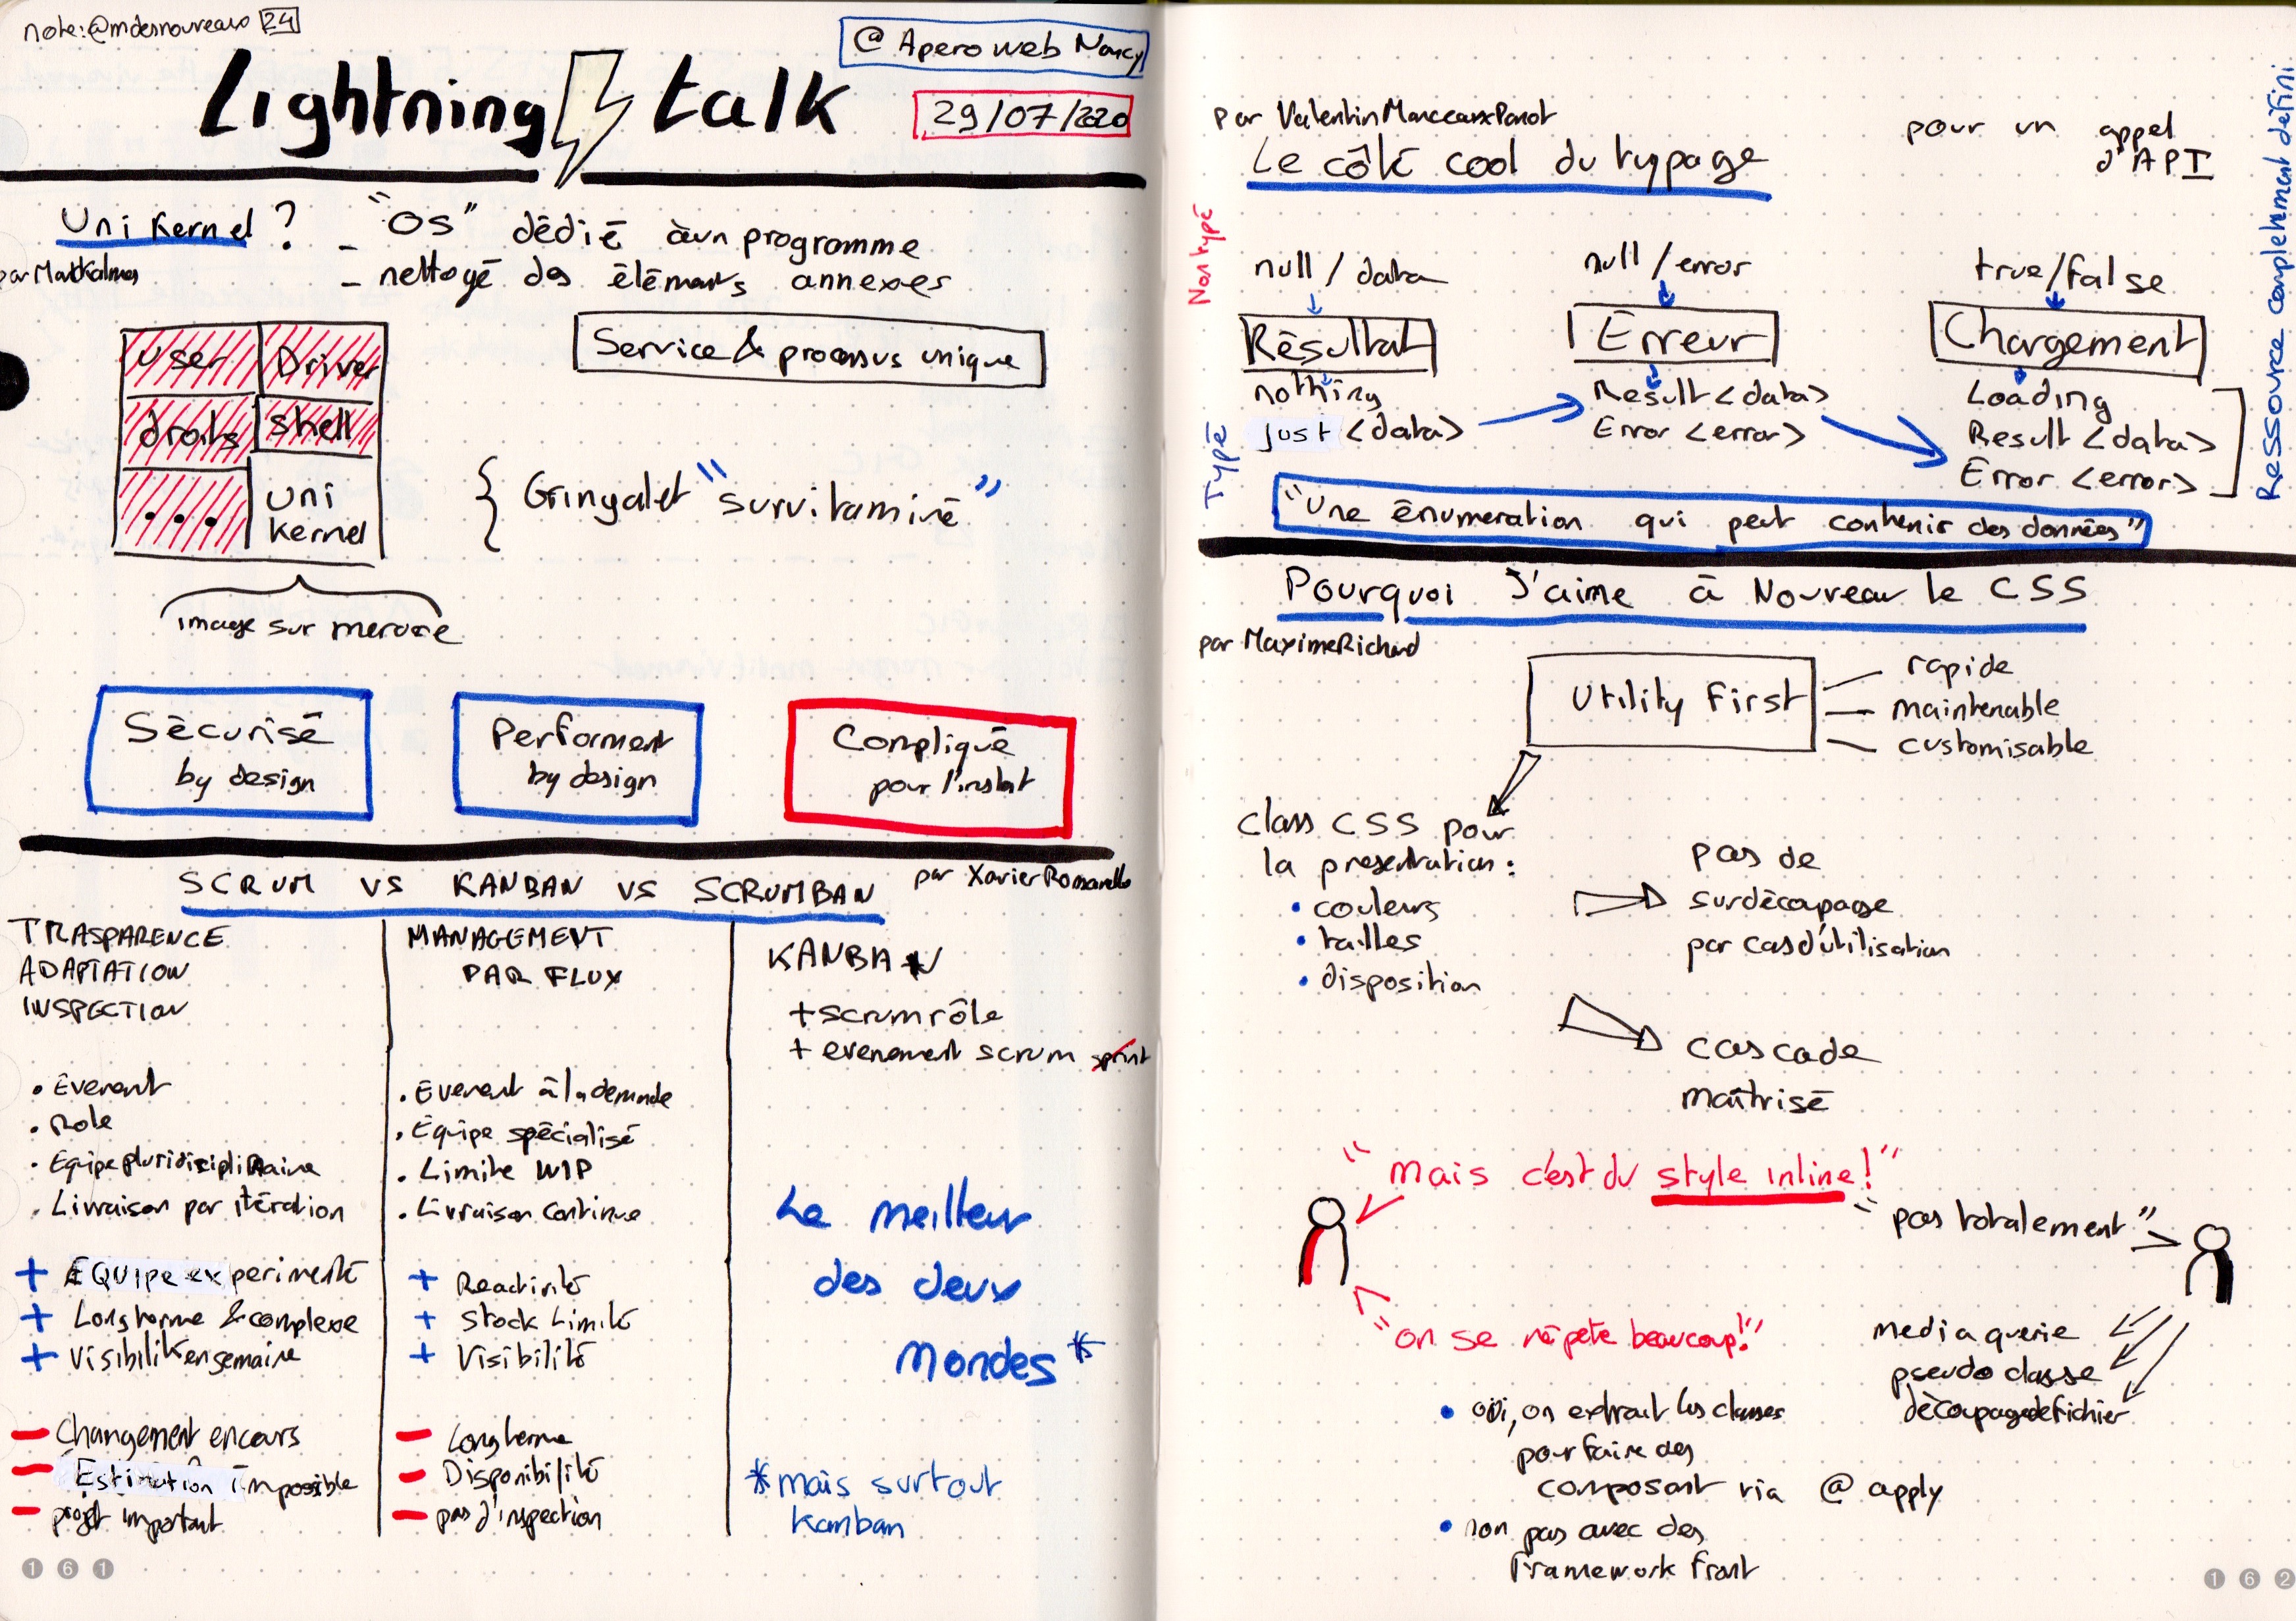 note:@mdesnoureaux 24
@ Apero web Nancy
Lightning talk
29/07/2020
Uni Kernel ?
- "OS" dédié à un programme
- nettoyé des éléments annexes
user Driver
droits shell
... uni kernel
Service & processus unique
{ Gringalet "survitaminé"
image sur mesure
Sécurisé by design
Performent by design
Compliqué pour l'instat
SCRUM VS KANBAN VS SCRUMBAN
par Xavier Romanello
TRASPARENCE
ADAPTATION
INSPECTION
• Évenent
• Role
• Equipe pluridisciplinaire
• Livraison par itération
+ EQUIPE experimenté
+ Long terme & complexe
+ Visibilité en semaine
- Changement en cours
- Estimation impossible
- projet important
MANAGEMENT
PAR FLUX
• Evenent à la demande
• Equipe spécialisé
• Limite WIP
• Livraison continue
+ Reactivité
+ Stock Limité
+ Visibilité
- Long terme
- Disponibilité
- pas d'inspection
KANBAN
+ scrum rôle
+ evenement scrum sprint
Le meilleur
des deux
Mondes *
* mais surtout
kanban
161
par Valentin Marceaux Panot
Le côté cool du typage
pour un appel
d'API
Non typé
null / data
null / error
true/false
Résultat
Erreur
Chargement
Typé
nothing
just <data>
Result <data>
Error <error>
Loading
Result <data>
Error <error>
Ressource complètement défini
"Une énumeration qui peut contenir des données"
Pourquoi J'aime à Nouveau le CSS
par Maxime Richard
Utility First
rapide
maintenable
customisable
Class CSS pour
la presentration :
• couleurs
• tailles
• disposition
pas de
surdécoupage
par cas d'utilisation
cascade
maîtrisé
"Mais c'est du style inline !"
"pas totalement"
"on se répete beaucoup!"
media querie
pseudo classe
découpage de fichier
• oui, on extrait les classes
pour faire des
composant via @apply
• non pas avec des
Framework front
162